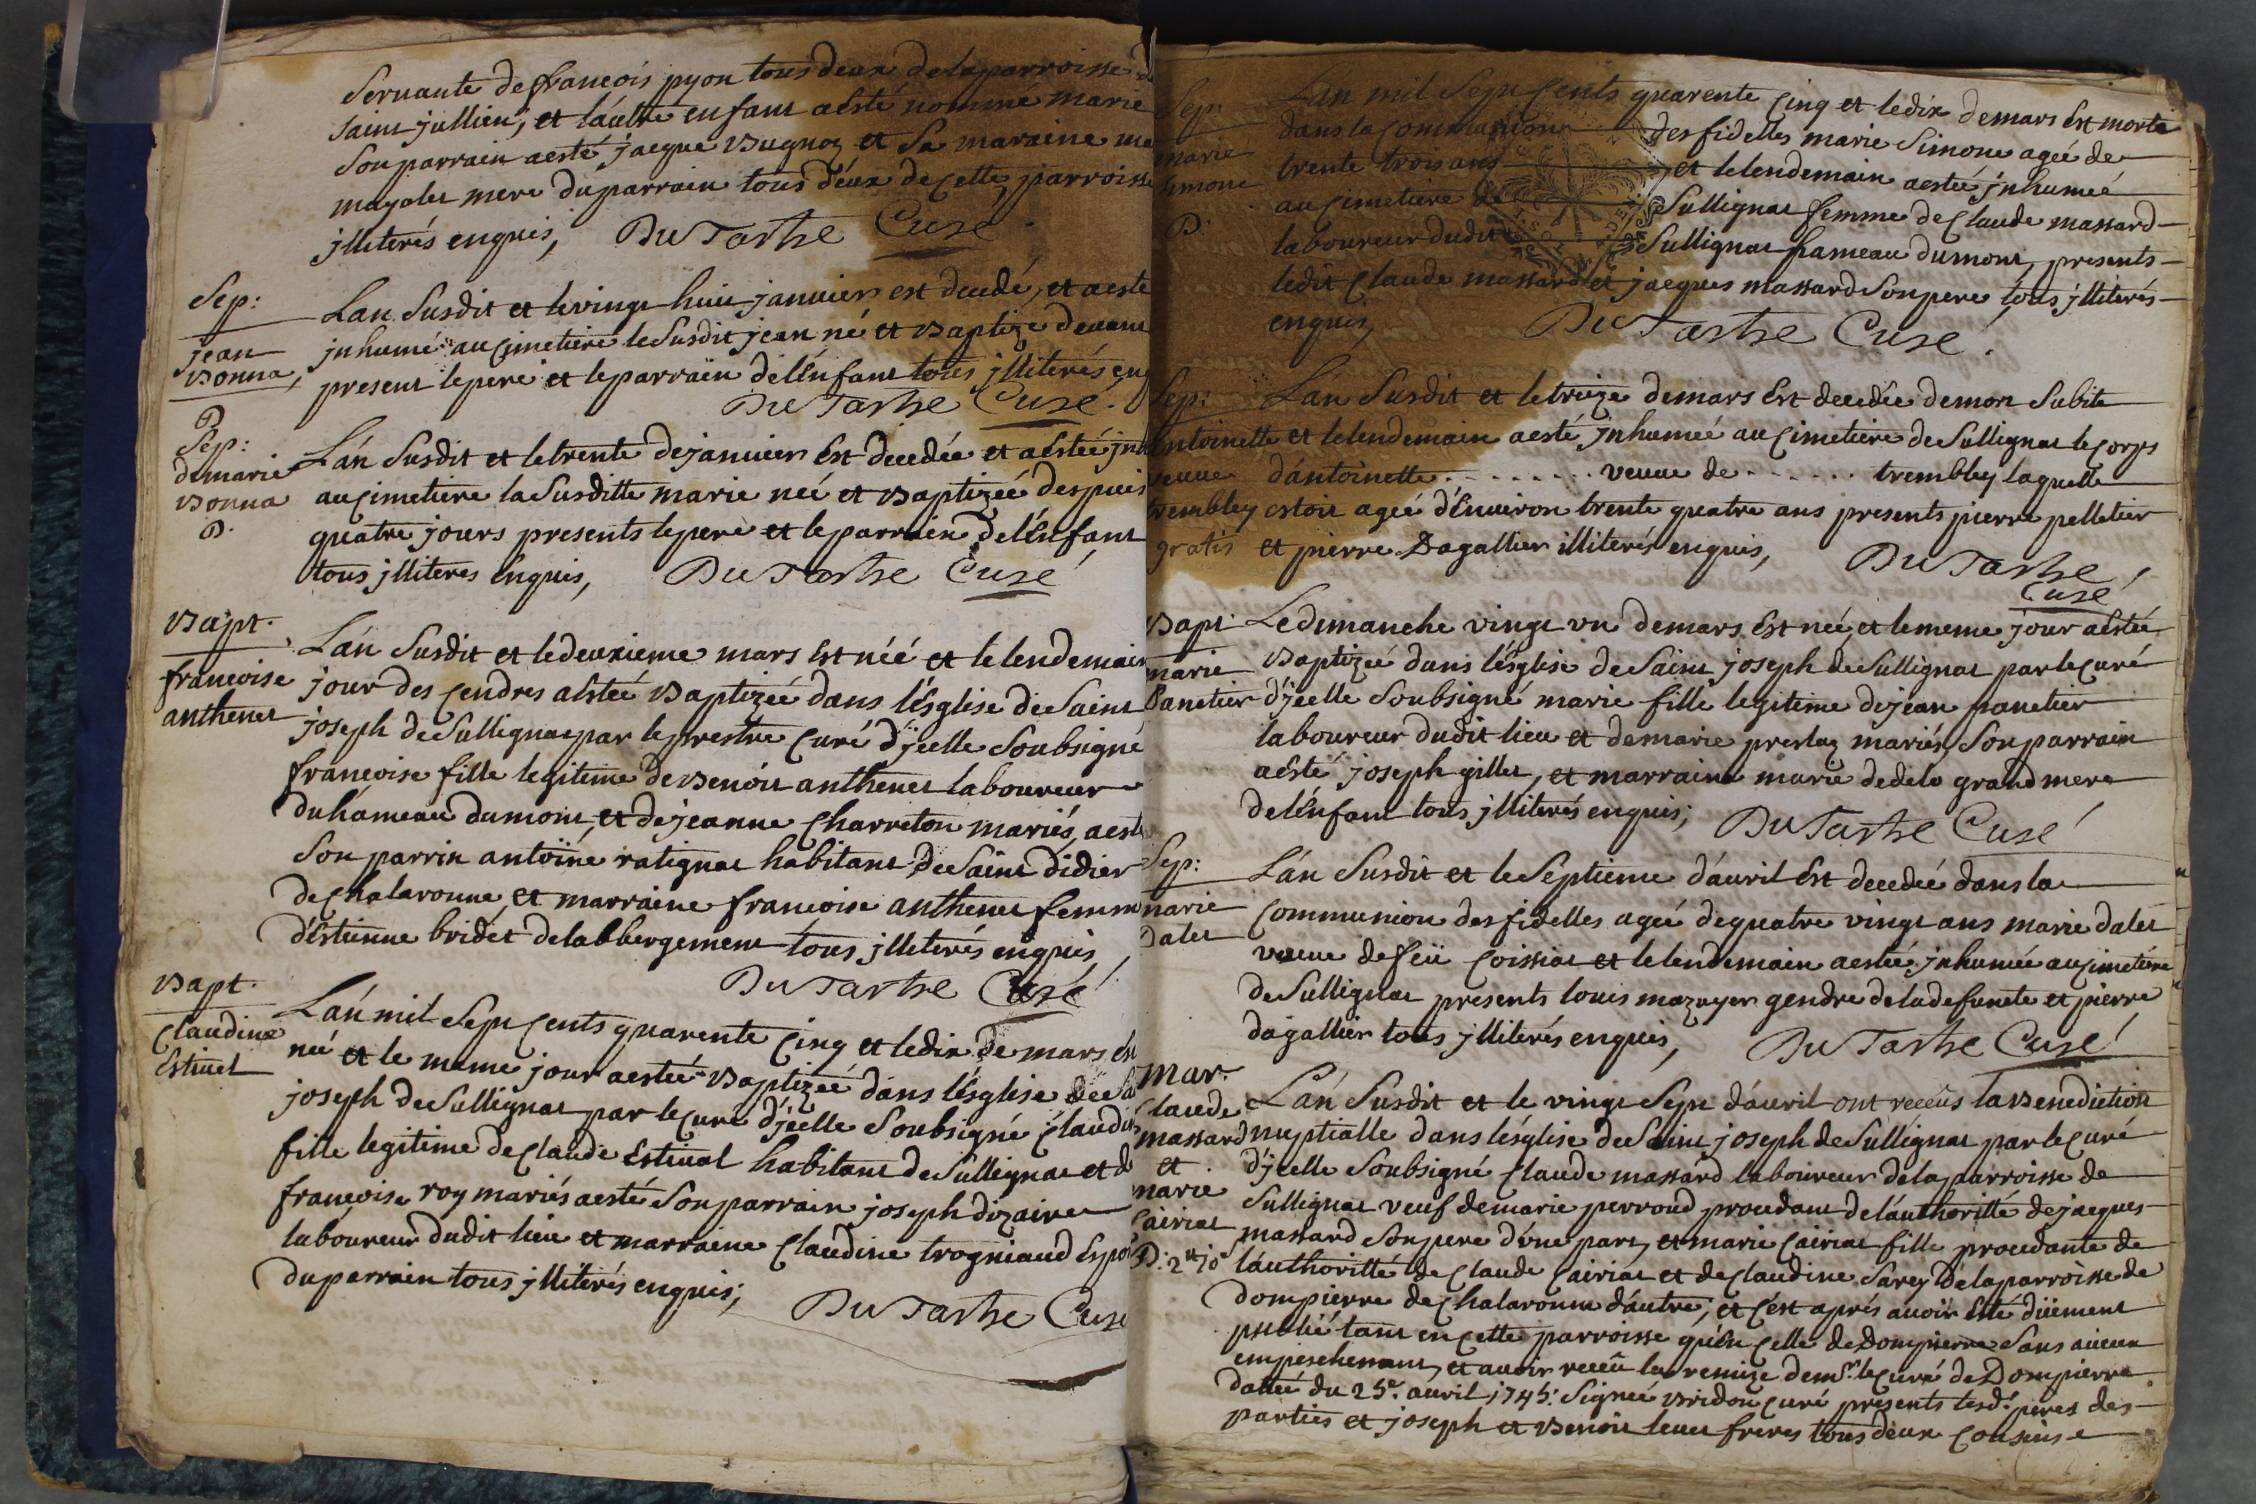 servante de françois pyon tous deux de la parroisse de
saint jullien, et laultre enfant a esté nommé marie
son parrain a esté jacque Bugnoz et sa maraine
mayolet mere du parrain tous deux de cette parroisse
jlliterés enquis, Du Tartre Curé
Sep:
jean
Bonna,
D
Lan susdit et le vingt huit janvier est decedé, et a esté
jnhumé au cimetiere le susdit jean né et Baptizé devant
present le pere et le parrain de l'énfant tous jlliterés enq
Du Tartre Curé.
Sep:
de marie
Bonna
D.
L'án susdit et le trente de janvier est decedée et a estée jnh
au cimetiere la susditte marie née et Baptizée despuis
quatre jours presents le pere et le parrain de l'énfant
tous jlliteres enquis, Du Tartre Curé
Bapt.
françoise
anthenet
L'án susdit et le deuxieme mars est néé et le lendemain
jour des cendres a estéé Baptizée dans l'ésglise de Saint
joseph de Sullignat par le prestre curé d'jcelle soubsigné
françoise fille legitime de Benoit anthenet laboureur
du hámeau du mont, et de jeanne Charreton mariés, a esté
son parrin antoine ratignat habitant de Saint didier
de Chalaronne, et marraine françoise anthenet femme
d'éstienne bridet de labbergement tous jlliterés enquis,
Du Tartre Curé
Bapt.
Claudine
Estivel
L'án mil sept cents quarente cinq et le dix de mars est
néé et le meme jour a estéé Baptizéé dans l'ésglise de Sa
joseph de Sullignat par le curé d'jcelle soubsigné claudin
fille legitime de Claude Estival habitant de Sullignat et d
françoise roy mariés a esté son parrain joseph dizaire
laboureur dudit lieu et marraine Claudine trogniaud Espou
du parrain tous jlliterés enquis; Du Tartre Curé
Sep:
marie
simone
D:
Lan mil sept cents quarente cinq et le dix de mars est morte
dans la communion des fidelles marie simone agéé de
trente trois ans et le lendemain a estéé jnhuméé
au cimetiere de Sullignat femme de Claude massard
laboureur dudit Sullignat hameau du mont, presents
ledit Claude massard et jacques massard son pere tous jlliterés
enquis, Du Tartre Curé.
Sep:
antoinette
veuve
trembley
gratis
L'án susdit et le treize de mars est decedée de mort subite
et le lendemain a esté jnhuméé au cimetiere de Sullignat le corps
d'ántoinette . . . . . . . . veuve de . . . . . . trembley laquelle
estoit agéé d'énviron trente quatre ans presents pierre pelletier
et pierre Dagallier illiterés enquis, Du Tartre
Curé
Bapt
marie
Panetier
Le dimanche vingt vn de mars est néé, et le meme jour a estéé
Baptizéé dans l'ésglise de Saint joseph de Sullignat par le curé
d'jcelle soubsigné marie fille legitime de jean panetier
laboureur dudit lieu et de marie preslaz mariés son parrain
a ésté joseph gillet, et marraine marie dedele grand mere
de l'énfant tous jlliterés enquis; Du Tartre Curé
Sep:
marie
dalet
L'án susdit et le septieme d'ávril est decedéé dans la
communion des fidelles agéé de quatre vingt ans marie dalet
veuve de feü Coissiat et le lendemain a estéé jnhumée au cimetiére
de Sullignat presents louis mazuyer gendre de la defuncte et pierre
dagallier tous jlliterés enquis, Du Tartre Curé
Mar.
Claude
massard
et
marie
Cairiat
L'án susdit et le vingt sept d'ávril ont receüs la Benediction
nuptialle dans l'ésglise de Saint joseph de Sullignat par le curé
d'jcelle soubsigné Claude massard laboureur de la parroisse de
Sullignat veuf de marie perroud procedant de l'áuthorité de jacques
massard son pere d'úne part, et marie Cairiat fille procedante de
l'áuthoritté de Claude Cairiat et de Claudine Sarey de la parroisse de
dompierre de Chalaronne d'áutre, et c'ést aprés avoir esté düement
publié tant en cette parroisse qu'én celle de Dompierre sans aucun
empeschement, et avoir receü la remize de mr. le curé de Dompierre
dattéé du 25e. avril 1745. signéé Bridon curé presents lesd: peres des
parties et joseph et Benoit freres tous deux cousins